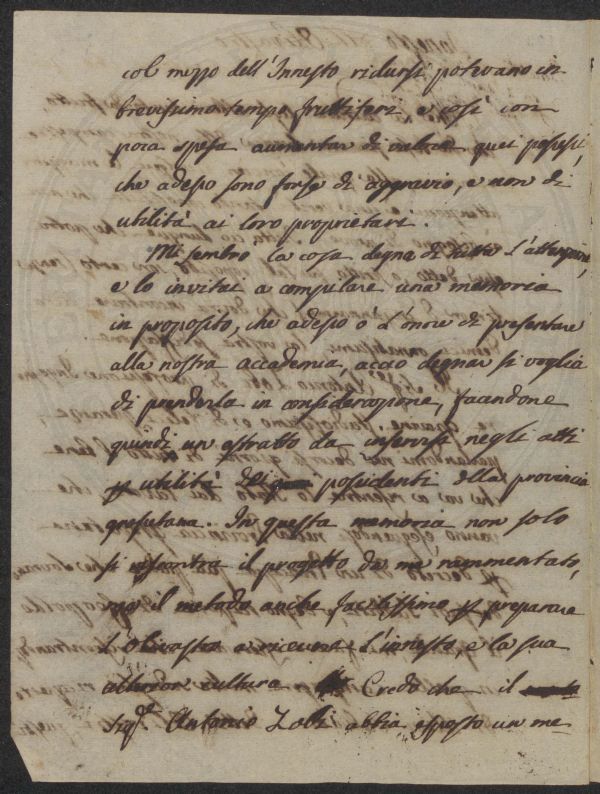 col mezzo dell'Innesto, ridursi potevano in
brevissimo tempo fruttiferi, e così con
poca spesa aumentar di valore quei possessi,
che adesso sono forse di aggravio, e non di
utilità ai loro proprietari.
Mi sembrò la cosa degna di tutta l'attenzione,
e lo invitai a compilare una memoria
in proposito, che adesso ò l'onore di presentare
alla nostra accademia, acciò degnar si voglia
di prenderla in considerazione, facendone
quindi un estratto da inserirsi negli atti
utilità dei possidenti della provincia
grossetana. In questa memoria non solo
si riscontra il progetto da me rammentato,
ma il metodo anche facilissimo preparare
l'olivastro a ricevere l'innesto, e la sua
ulterior cultura Credo che il
Sig.r Antonio abbia esposto un me-